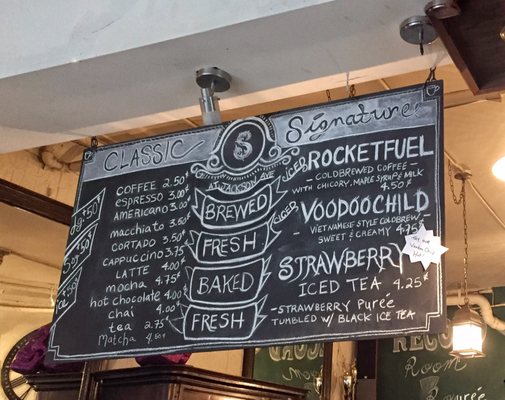 CLASSIC
COFFEE 2.50
ESPRESSO 3.00
AMERICANO 3.00
macchiato 3.50
CORTADO 3.50
CAPPUCCINO 3.75
LATTE 4.00
mocha 4.75
hot chocolate 4.00
chai 4.00
tea 2.75
Matcha 4.50
S
JACKSON AVE
BREWED
FRESH
BAKED
FRESH
Signature
ICED
ROCKETFUEL
COLDBREWED COFFEE
WITH CHICORY, MAPLE SYRUP & MILK
4.50
ICED
VOODOOCHILD
VIETNAMESE STYLE COLDBREW
SWEET & CREAMY 4.75
STRAWBERRY
ICED TEA 4.25
-STRAWBERRY PUREÉ
TUMBLED W/ BLACK ICE TEA
Room